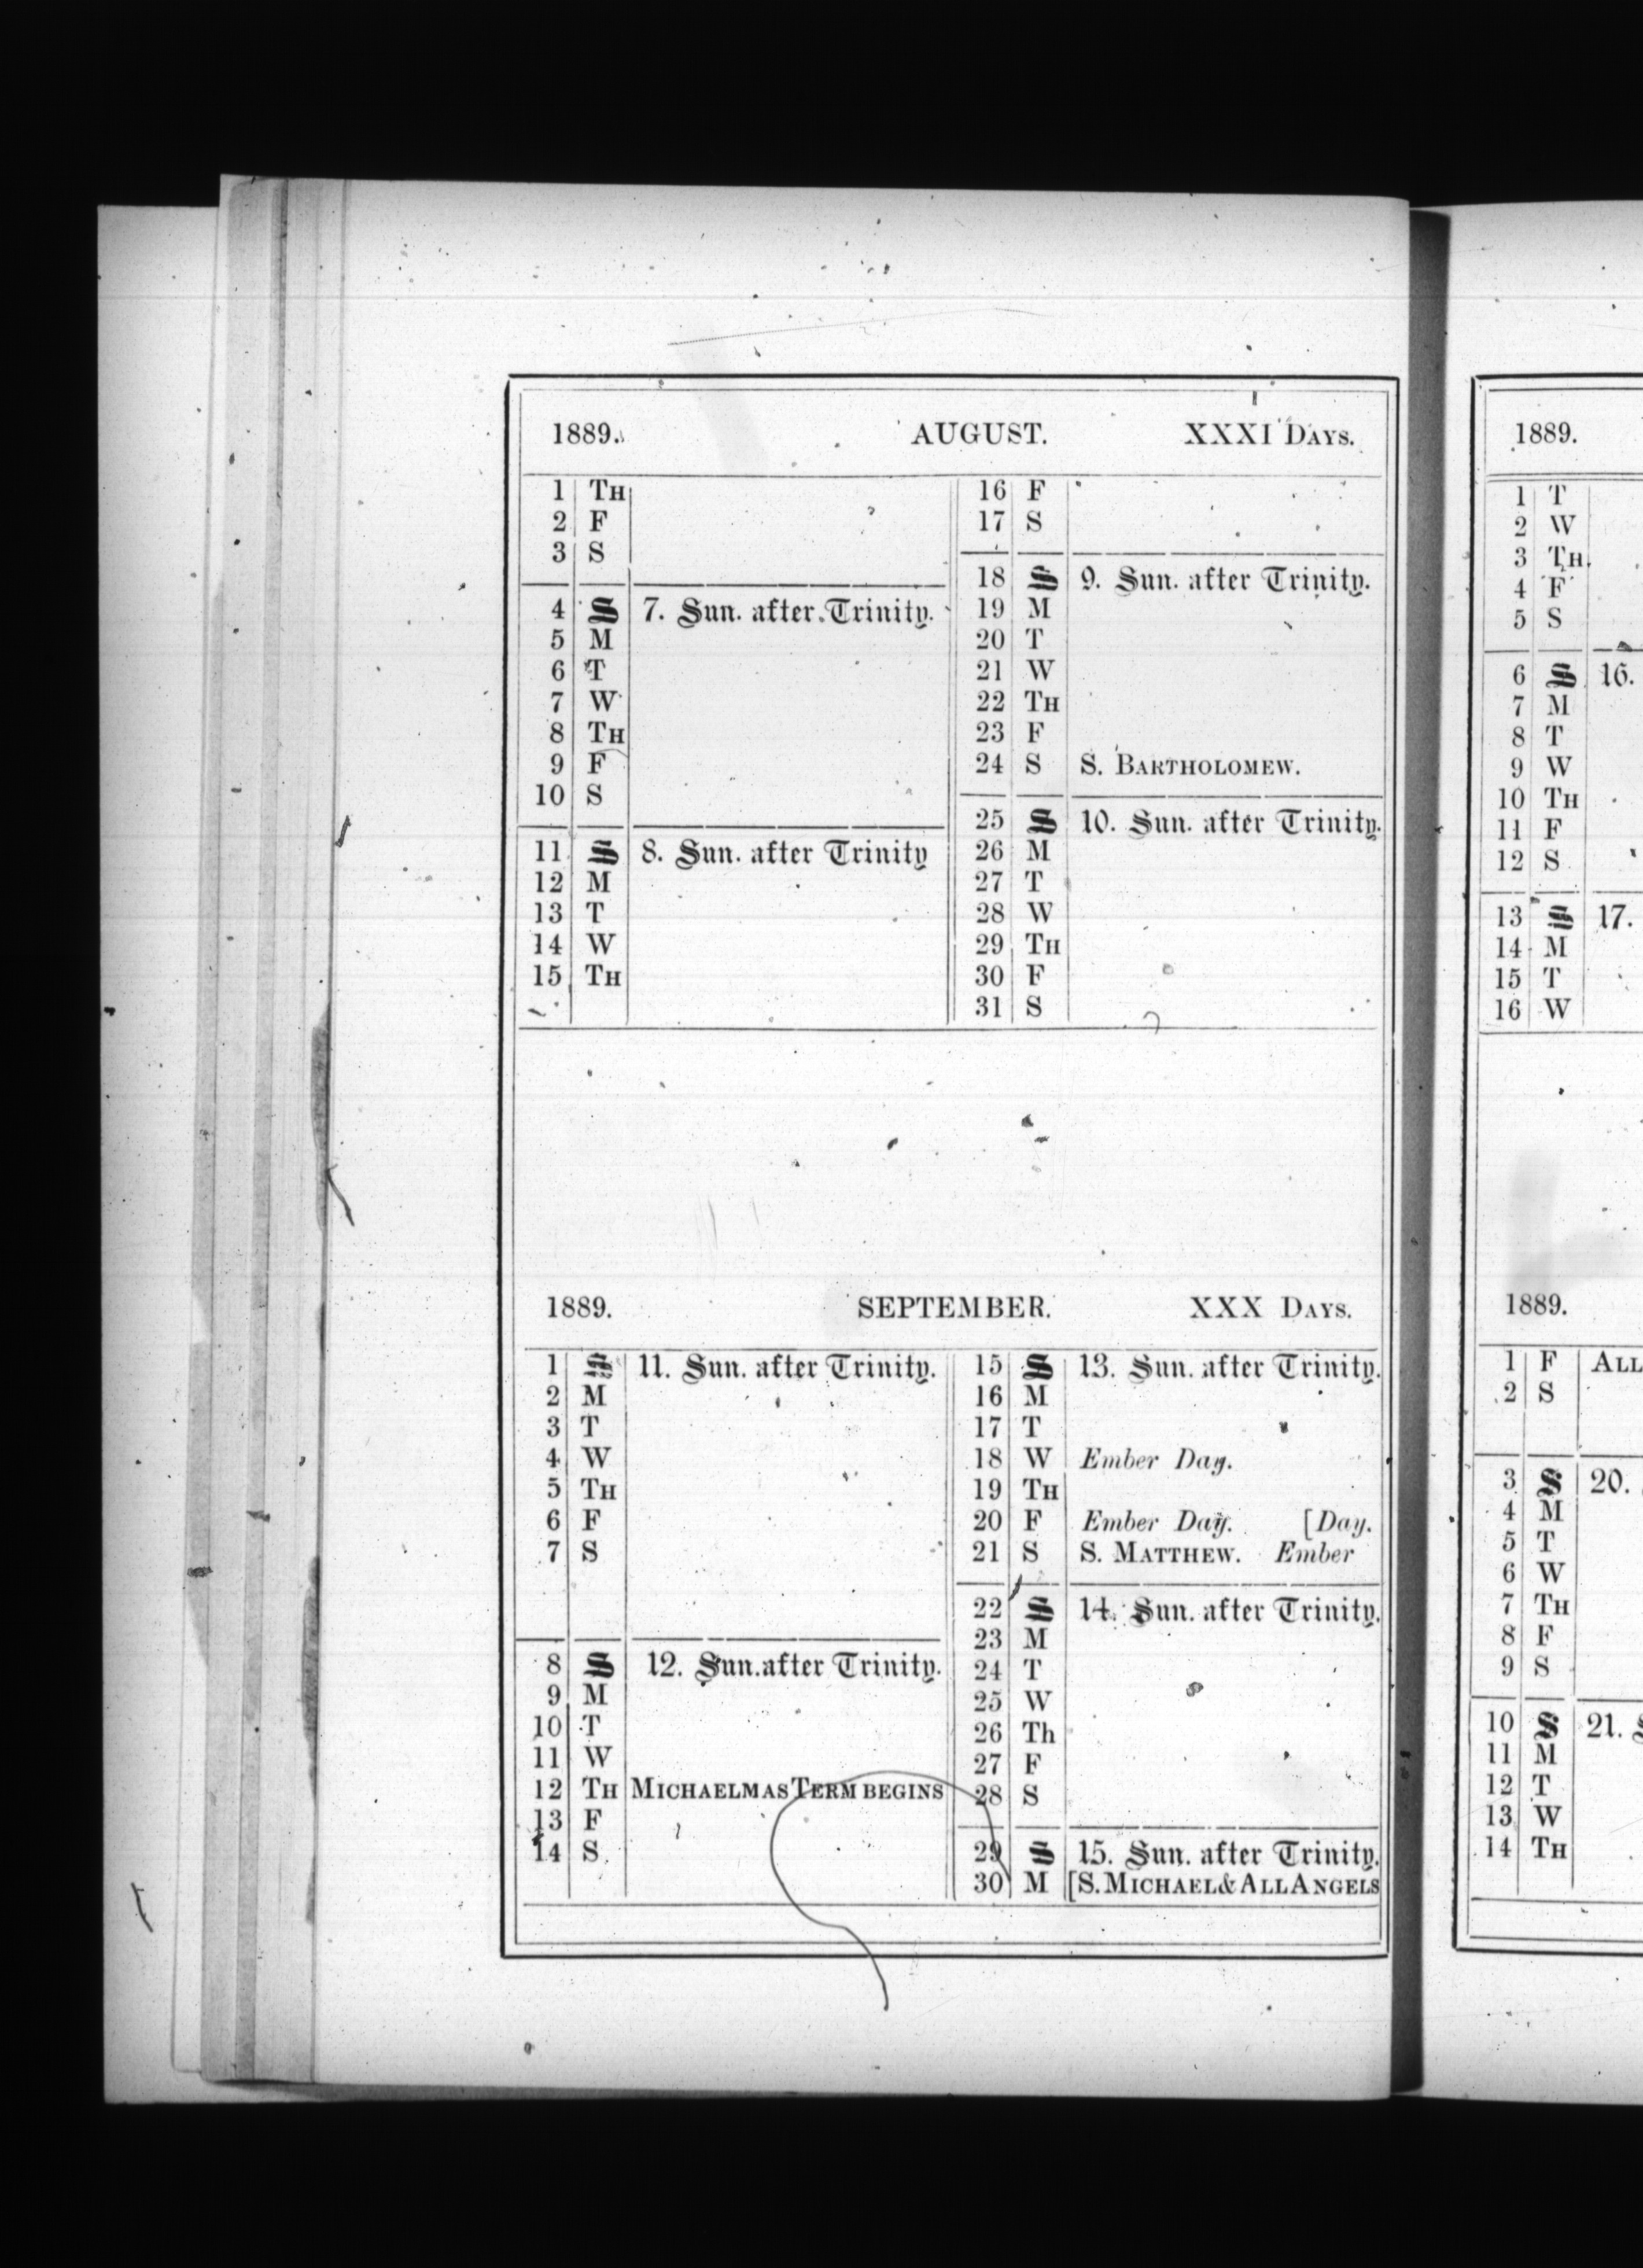 1889. AUGUST. XXXI DAYS.
1 TH
2 F
3 S
4 S 7. Sun. after Trinity.
5 M
6 T
7 W
8 TH
9 F
10 S
11 S 8. Sun. after Trinity
12 M
13 T
14 W
15 TH
16 F
17 S
18 S 9. Sun. after Trinity.
19 M
20 T
21 W
22 TH
23 F
24 S S. BARTHOLOMEW.
25 S 10. Sun. after Trinity.
26 M
27 T
28 W
29 TH
30 F
31 S
1889. SEPTEMBER. XXX DAYS.
1 S 11. Sun. after Trinity.
2 M
3 T
4 W
5 TH
6 F
7 S
8 S 12. Sun. after Trinity.
9 M
10 T
11 W
12 TH MICHAELMAS TERM BEGINS
13 F
14 S
15 S 13. Sun. after Trinity.
16 M
17 T
18 W Ember Day.
19 TH
20 F Ember Day. [Day.
21 S S. MATTHEW. Ember
22 S 14. Sun. after Trinity.
23 M
24 T
25 W
26 Th
27 F
28 S
29 S 15. Sun. after Trinity.
30 M [S. MICHAEL & ALL ANGELS
1889.
1 T
2 W
3 TH
4 F
5 S
6 S 16.
7 M
8 T
9 W
10 TH
11 F
12 S
13 S 17.
14 M
15 T
16 W
1889.
1 F ALL
2 S
3 S 20.
4 M
5 T
6 W
7 TH
8 F
9 S
10 S 21. S
11 M
12 T
13 W
14 TH